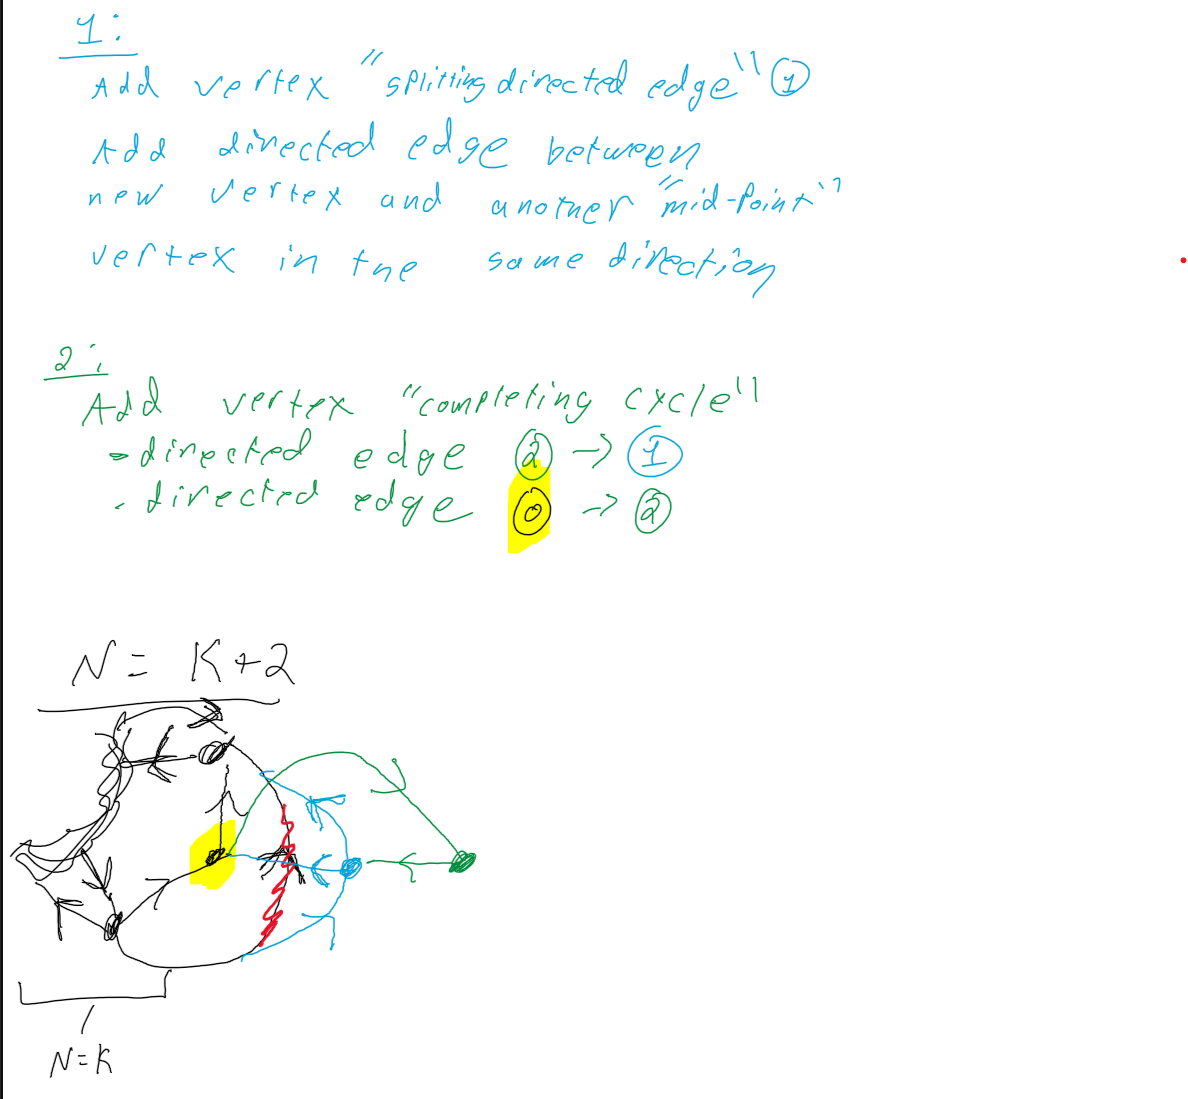 1:
Add vertex "splitting directed edge" 1
Add directed edge between
new vertex and another "mid-point"
vertex in the same direction
2:
Add vertex "completing cycle"
- directed edge 2 -> 1
- directed edge 0 -> 2
N = K+2
N=K